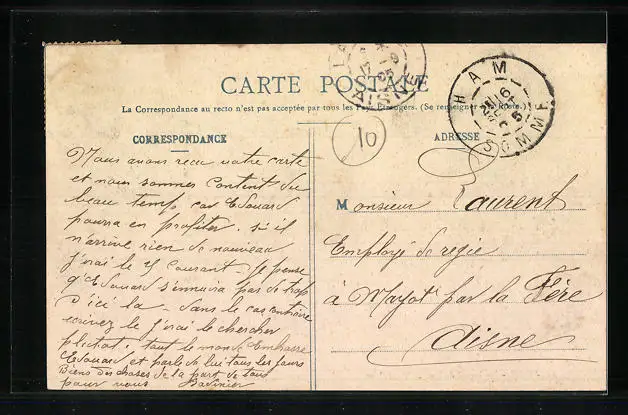 CARTE POSTALE
La Correspondance au recto n'est pas acceptée par tous les Pays Étrangers. (Se renseigner à la Poste.)
CORRESPONDANCE
ADRESSE
10
HAM
SOMME
AISNE
Nous avons recu votre carte
et nous sommes content du
beau temp car Edouard
pourra en profiter si il
n'arrive rien de nouveau
j'irai le 25 Courant Je pense
q'Edouard s'ennuira pas de trop
d'ici la dans le cas contraire
ecrivez le j'irai le chercher
plutot. tout le monde Embrasse
Edouard et parle de lui tous les jours
Biens des choses de la part de tous
pour vous
Monsieur Laurent
Employé de regie
à Mayot par la Fère
Aisne